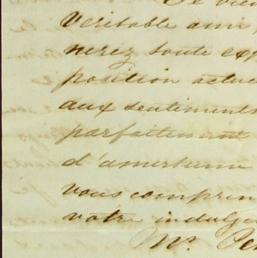 veritable ami,
nerez toute exp
position actue
aux sentiments
parfaitement
d'amertume
vous compren
votre indulge
Mr. Per